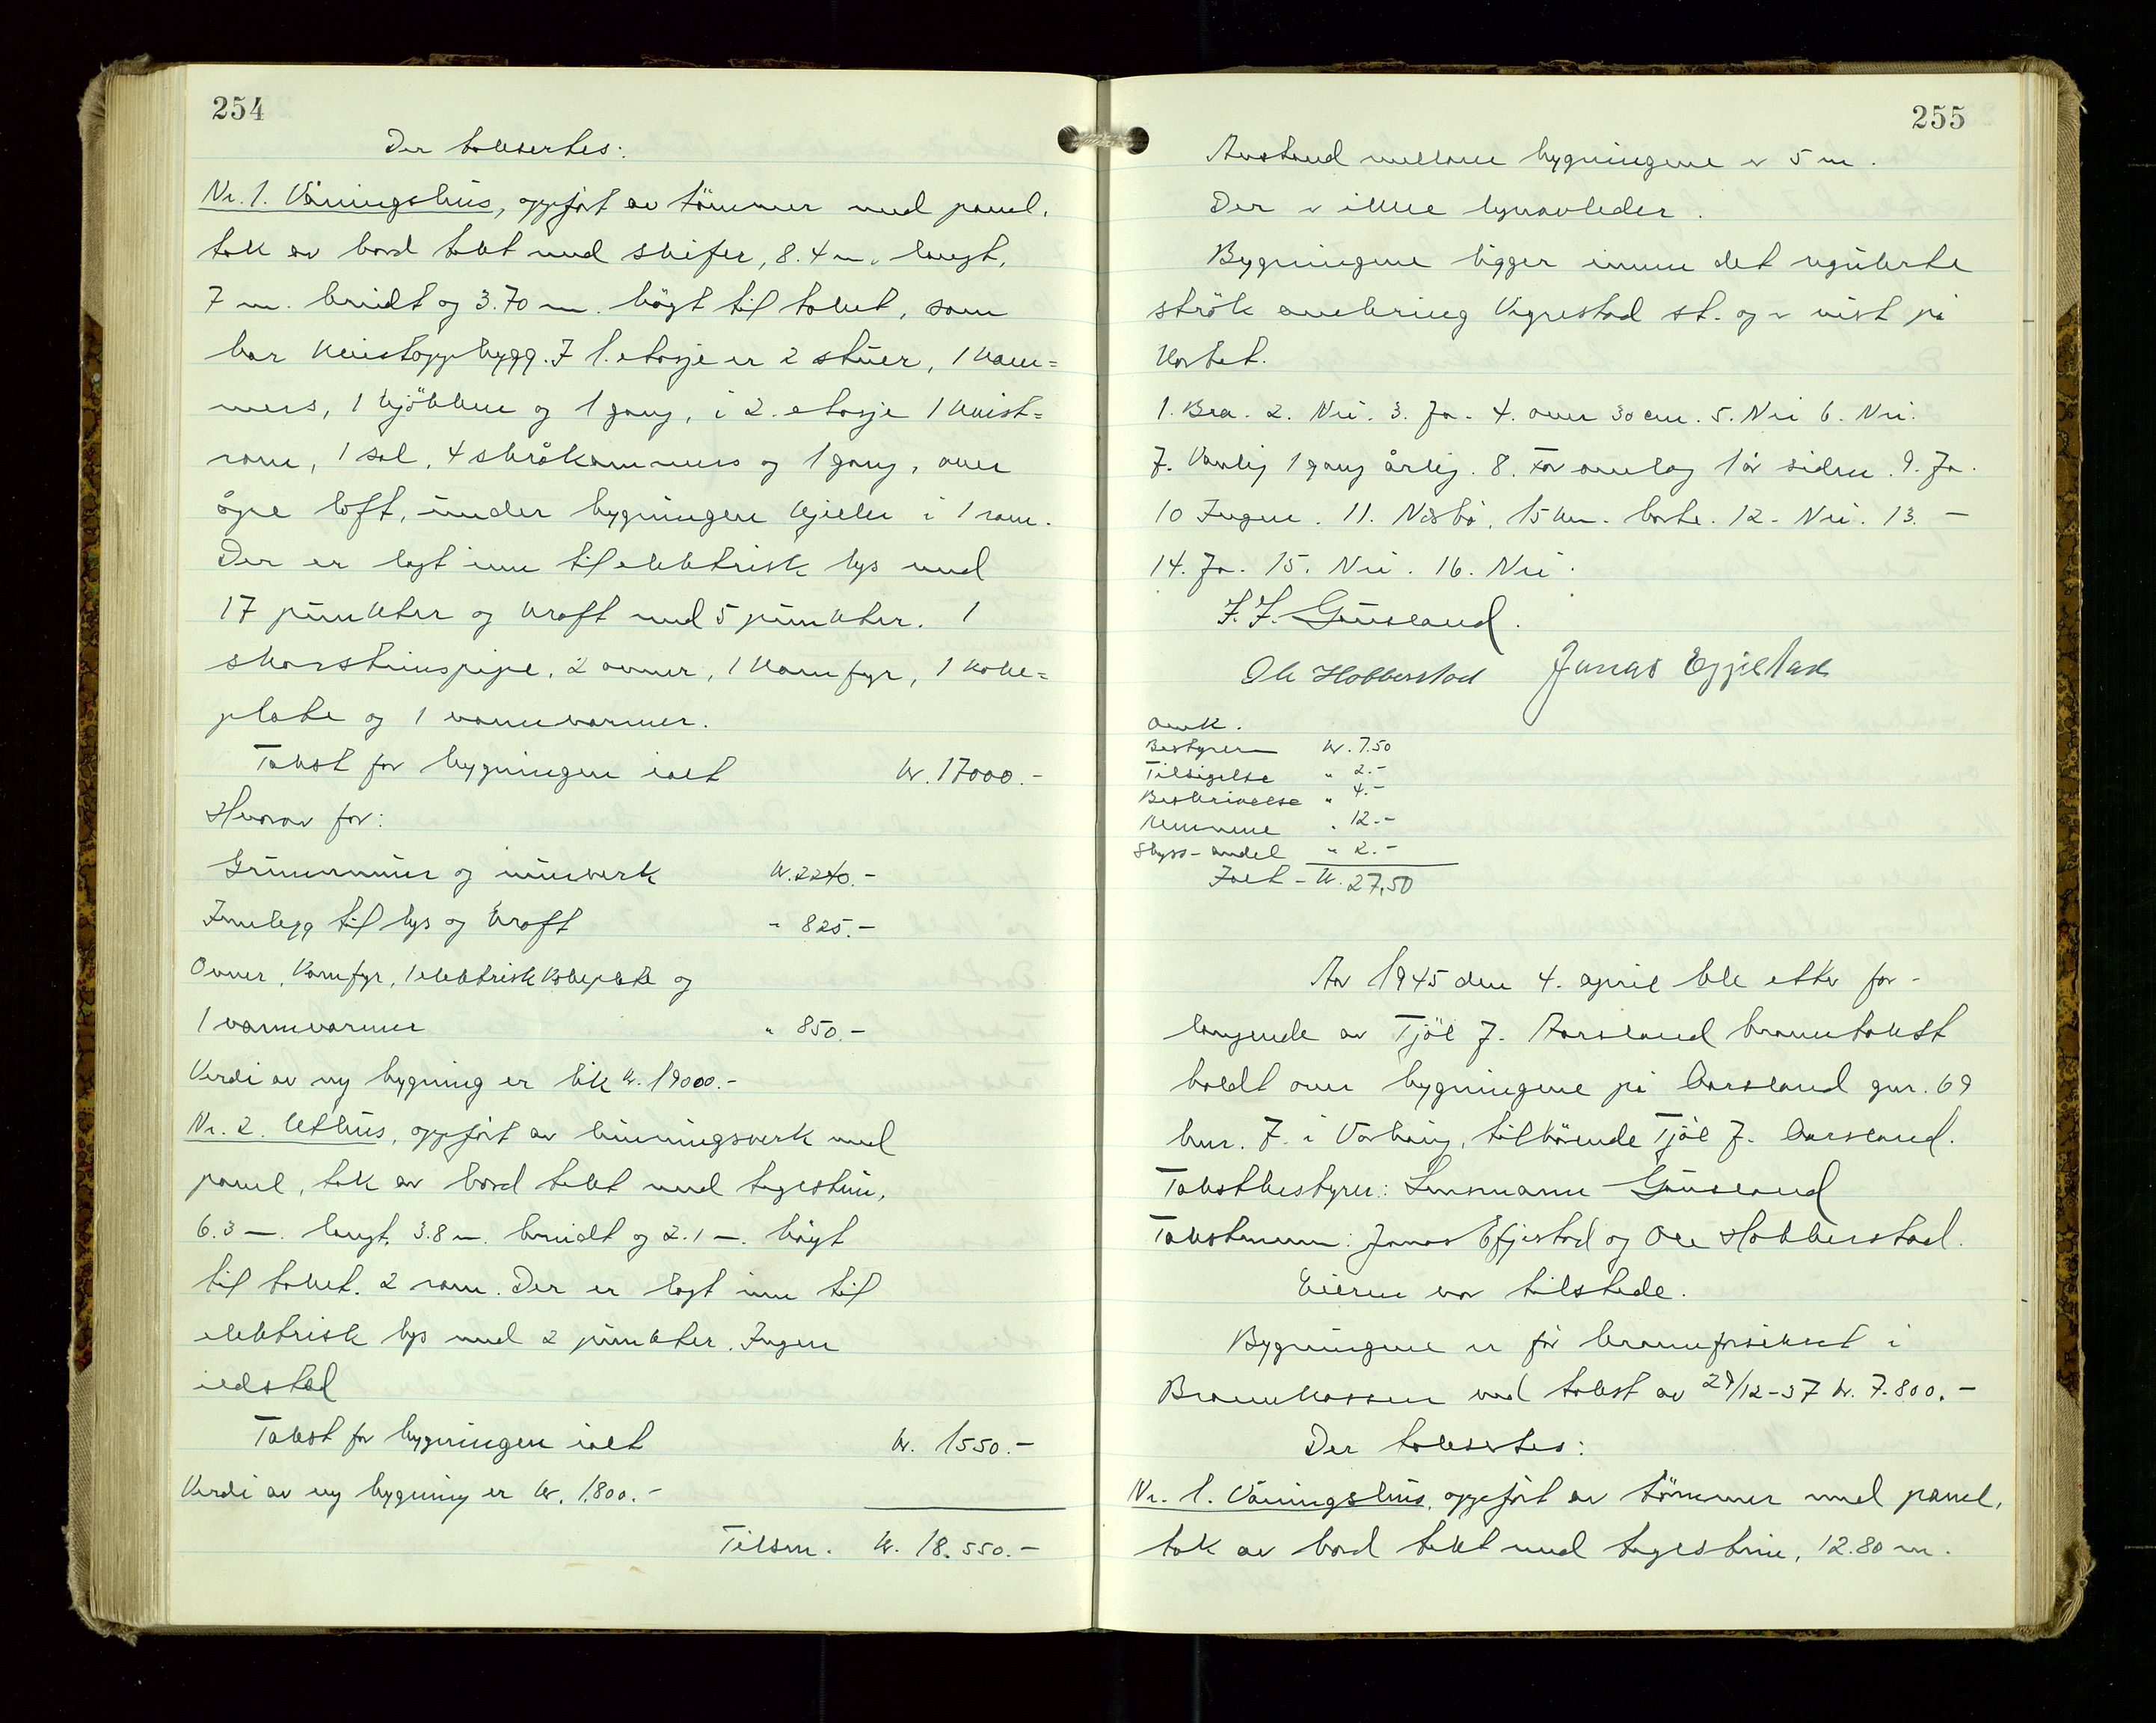 254
Der taksertes:
Nr. 1. Våningshus, oppført av tömmer med panel,
tak av bord tekt med skifer, 8.4 m. langt,
7 m. breidt og 3.70 m. högt til taket, som
har kvistoppbygg. I 1. etasje er 2 stuer, 1 kam=
mers, 1 kjökken og 1 gang, i 2. etasje 1 kvist=
rom, 1 sal, 4 skråkammers og 1 gang, over
åpe loft, under bygningen kjeller i 1 rom.
Der er lagt inn til elektrisk lys med
17 punkter og kraft med 5 punkter. 1
skorsteinspipe, 2 ovner, 1 komfyr, 1 koke=
plate og 1 vannvarmer.
Takst for bygningen ialt kr. 17000.-
Hvorav for:
Grunnmur og murverk kr. 2240.-
Innlegg til lys og kraft " 825.-
Ovner, komfyr, 1 elektrisk kokeplate og
1 vannvarmer " 850.-
Verdi av ny bygning er lik kr. 19000.-
Nr. 2. Uthus, oppført av binningsverk med
panel, tak av bord tekt med teglstein,
6.3 m. langt, 3.8 m. breidt og 2.1 m. högt
til taket. 2 rom. Der er lagt inn til
elektrisk lys med 2 punkter. Ingen
ildsted
Takst for bygningen ialt kr. 1550.-
Verdi av ny bygning er kr. 1.800.-
Tilsm. kr. 18.550.-
255
Avstand mellom bygningene er 5 m.
Der er ikke lynavleder.
Bygningene ligger innen det regulerte
strök omkring Vigrestad st. og er vist på
kartet.
1. Bra. 2. Nei. 3. Ja. 4. over 30 cm. 5. Nei 6. Nei.
7. Vanlig 1 gang årlig. 8. For omlag 1 år siden. 9. Ja.
10 Ingen. 11. Nærbö, 15 km. borte. 12. Nei. 13. -
14. Ja. 15. Nei. 16. Nei.
J. J. Grusland.
Ole Hobberstad Jonas Eggjestad
Omk.
Bestyreren kr. 7.50
Tilsigelse " 2.-
Beskrivelse " 4.-
Mennene " 12.-
Skyss-andel " 2.-
Ialt - kr. 27,50
År 1945 den 4. april ble etter for-
langende av Tjöl J. Aarsland branntakst
holdt over bygningene på Aarsland gnr. 69
bnr. 7. i Varhaug, tilhörende Tjöl J. Aarsland.
Takstbestyrer: Lensmann Grusland
Takstmenn: Jonas Eggjestad og Ole Hobberstad.
Eieren var tilstede.
Bygningene er för brannforsikret i
Brannkassen ved takst av 29/12-37 kr. 7.800.-
Der taksertes:
Nr. 1. Våningshus, oppført av tömmer med panel,
tak av bord tekt med teglstein, 12.80 m.